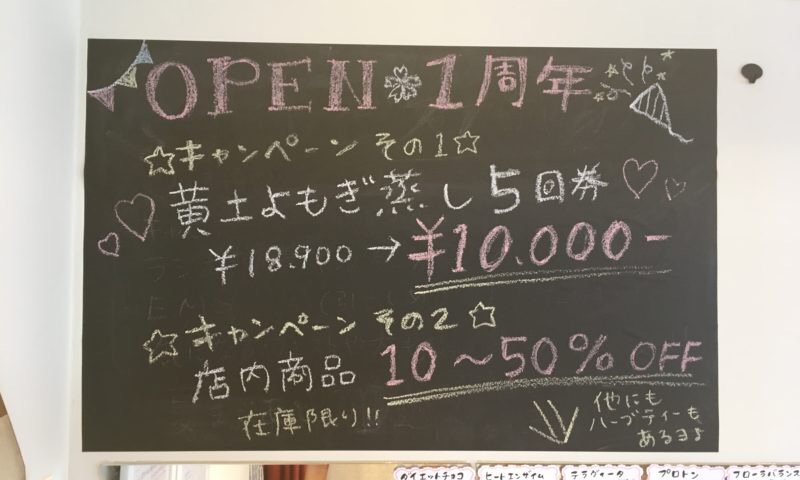 OPEN 1周年
☆キャンペーン その1☆
黄土よもぎ蒸し 5回券
¥18,900→¥10,000-
☆キャンペーン その2☆
店内商品 10〜50% OFF
在庫限り!!
他にも
ハーブティーも
あるヨ♪
ダイエットチョコ
ヒートエンザイム
テラヴィータ
プロトン
フローラバランス